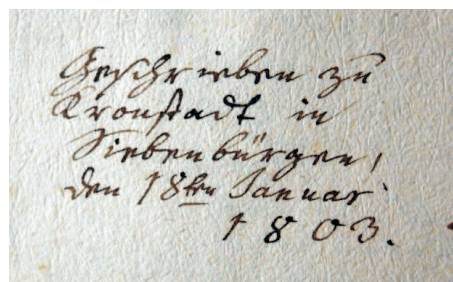 Geschrieben zu
Kronstadt in
Siebenbürgen,
den 18ten Januar
1803.